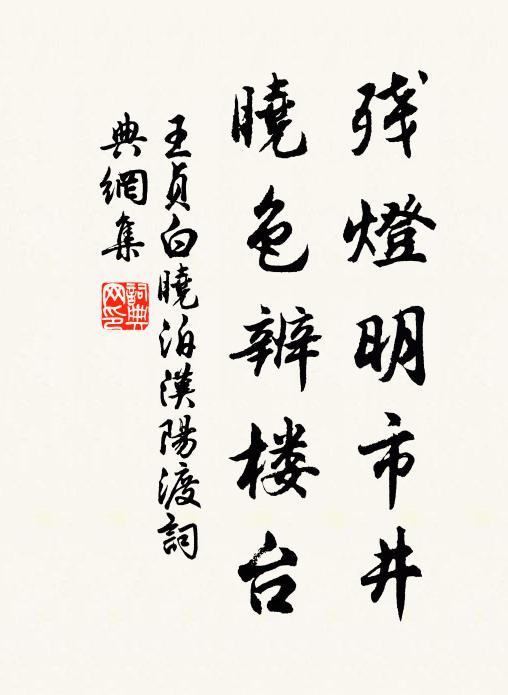 残燈明市井
曉色辨楼台
王貞白曉泊漢陽渡詞
典網集
詞典網印